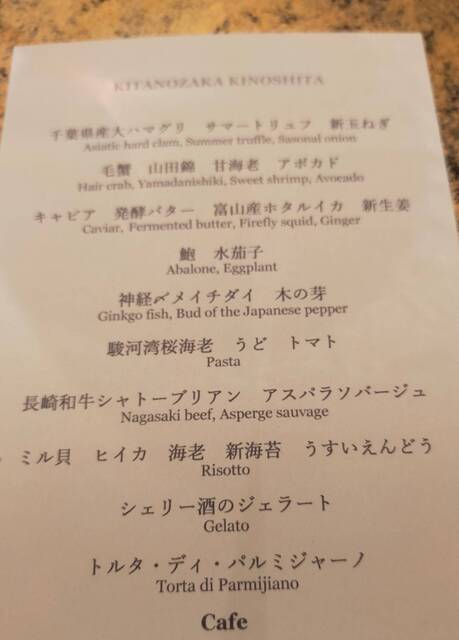 KITANOZAKA KINOSHITA
千葉県産大ハマグリ　サマートリュフ　新玉ねぎ
Asiatic hard clam, Summer truffle, Sasonal onion
毛蟹　山田錦　甘海老　アボカド
Hair crab, Yamadanishiki, Sweet shrimp, Avocado
キャビア　発酵バター　富山産ホタルイカ　新生姜
Caviar, Fermented butter, Firefly squid, Ginger
鮑　水茄子
Abalone, Eggplant
神経〆メイチダイ　木の芽
Ginkgo fish, Bud of the Japanese pepper
駿河湾桜海老　うど　トマト
Pasta
長崎和牛シャトーブリアン　アスパラソバージュ
Nagasaki beef, Asperge sauvage
ミル貝　ヒイカ　海老　新海苔　うすいえんどう
Risotto
シェリー酒のジェラート
Gelato
トルタ・ディ・パルミジャーノ
Torta di Parmijiano
Cafe